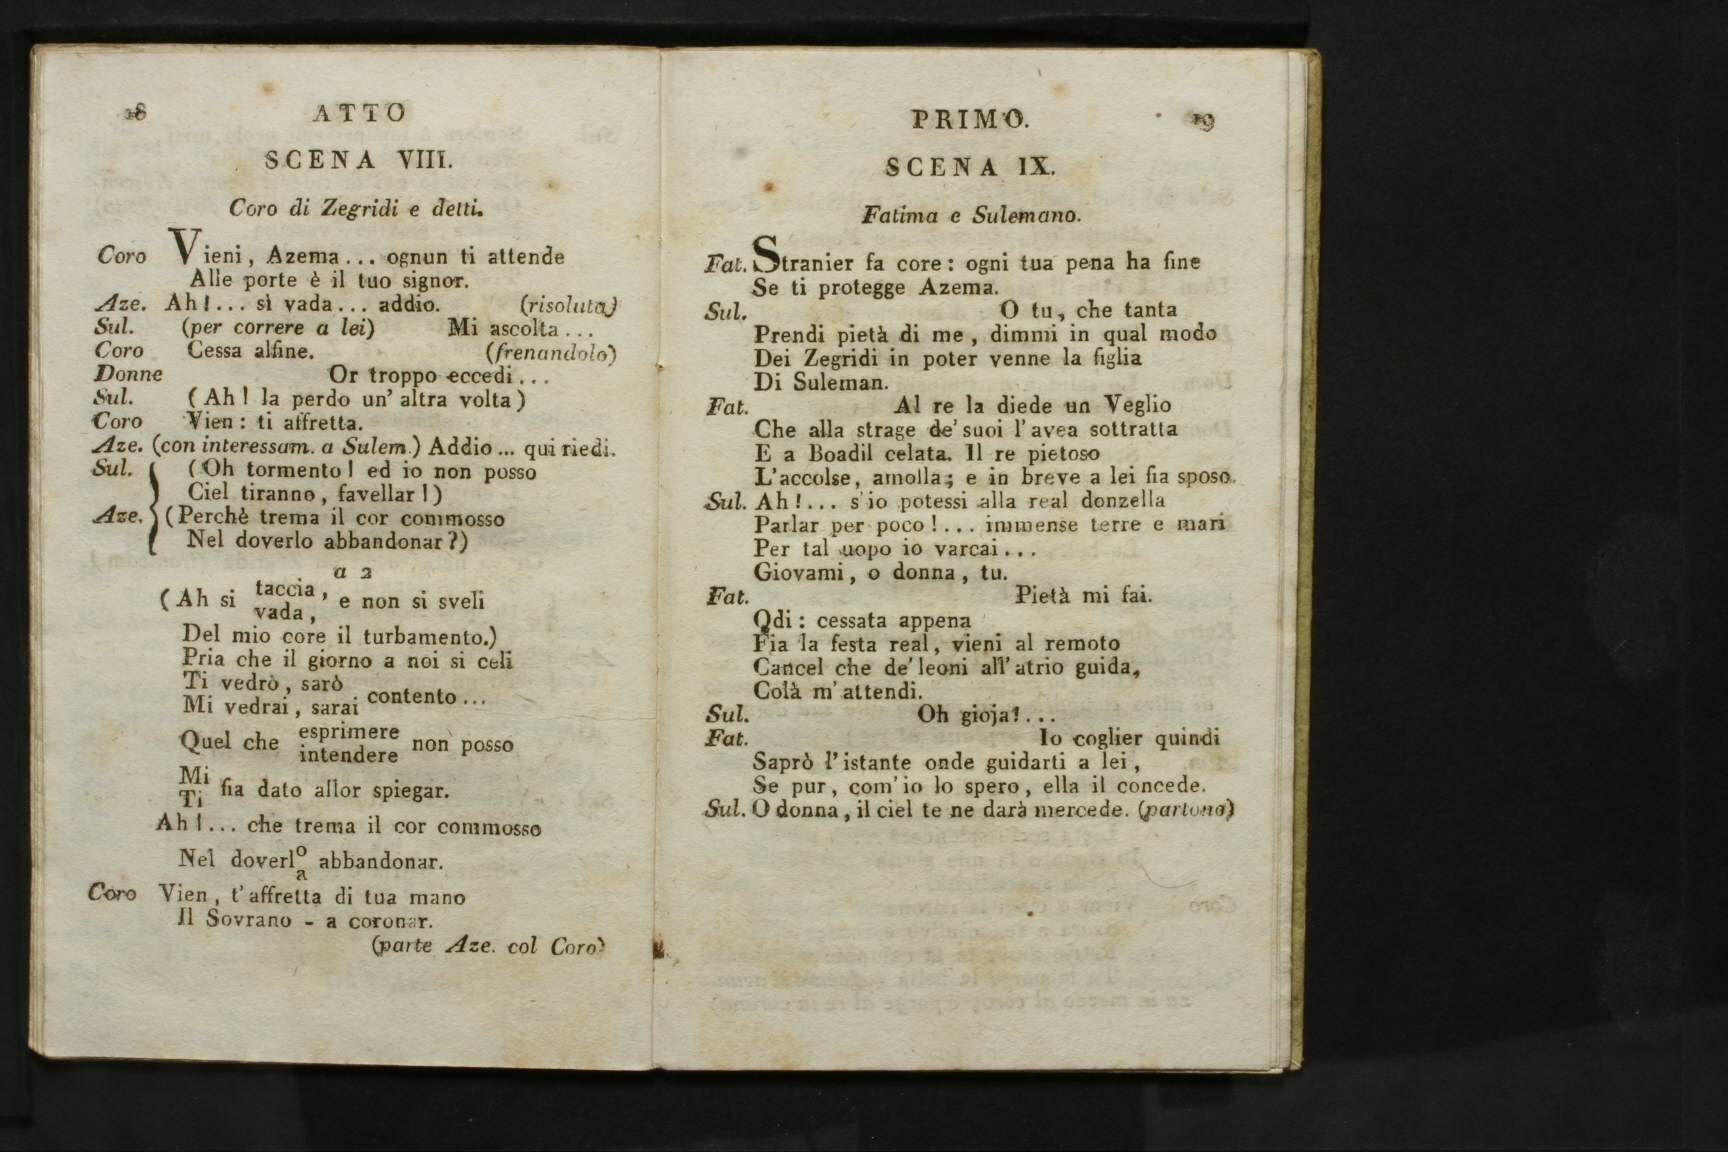 18 ATTO
SCENA VIII.
Coro di Zegridi e detti.
Coro Vieni, Azema... ognun ti attende
Alle porte è il tuo signor.
Aze. Ah!... sì vada... addio. (risoluta)
Sul. (per correre a lei) Mi ascolta...
Coro Cessa alfine. (frenandolo)
Donne Or troppo eccedi...
Sul. (Ah! la perdo un' altra volta)
Coro Vien: ti affretta.
Aze. (con interessam. a Sulem.) Addio... qui riedi.
Sul. (Oh tormento! ed io non posso
Ciel tiranno, favellar!)
Aze. (Perchè trema il cor commosso
Nel doverlo abbandonar?)
a 2
(Ah si taccia, e non si sveli
vada,
Del mio core il turbamento.)
Pria che il giorno a noi si celi
Ti vedrò, sarò
Mi vedrai, sarai contento...
Quel che esprimere non posso
intendere
Mi
Ti fia dato allor spiegar.
Ah!... che trema il cor commosso
Nel doverlo abbandonar.
a
Coro Vien, t' affretta di tua mano
Il Sovrano - a coronar.
(parte Aze. col Coro)
PRIMO. 19
SCENA IX.
Fatima e Sulemano.
Fat. Stranier fa core: ogni tua pena ha fine
Se ti protegge Azema.
Sul. O tu, che tanta
Prendi pietà di me, dimmi in qual modo
Dei Zegridi in poter venne la figlia
Di Suleman.
Fat. Al re la diede un Veglio
Che alla strage de' suoi l' avea sottratta
E a Boadil celata. Il re pietoso
L'accolse, amolla; e in breve a lei fia sposo.
Sul. Ah!... s'io potessi alla real donzella
Parlar per poco!... immense terre e mari
Per tal uopo io varcai...
Giovami, o donna, tu.
Fat. Pietà mi fai.
Odi: cessata appena
Fia la festa real, vieni al remoto
Cancel che de' leoni all' atrio guida,
Colà m' attendi.
Sul. Oh gioja!...
Fat. Io coglier quindi
Saprò l' istante onde guidarti a lei,
Se pur, com' io lo spero, ella il concede.
Sul. O donna, il ciel te ne darà mercede. (partono)